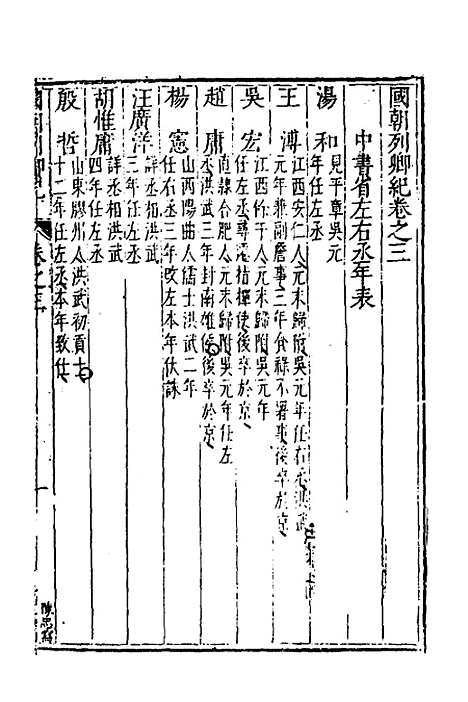 國朝列卿紀卷之三
中書省左右丞年表
湯和
見平章吳元
年任左丞
王溥
江西安仁人元末歸附吳元年任右丞洪武
元年兼副詹事三年食祿不署事後卒於京
吳宏
江西
人元末歸附吳元年
任左丞尋
指揮使後卒於京
趙庸
直隸合肥人元末歸附吳元年任左
丞洪武三年封南雄侯後卒於京
楊憲
山西陽曲人儒士洪武二年
任右丞三年改左本年伏誅
汪廣洋
詳丞相洪武
三年任左丞
胡惟庸
詳丞相洪武
四年任左丞
殷哲
山東膠州人洪武初貢士
十二年任左丞本年致仕
卷之三
一